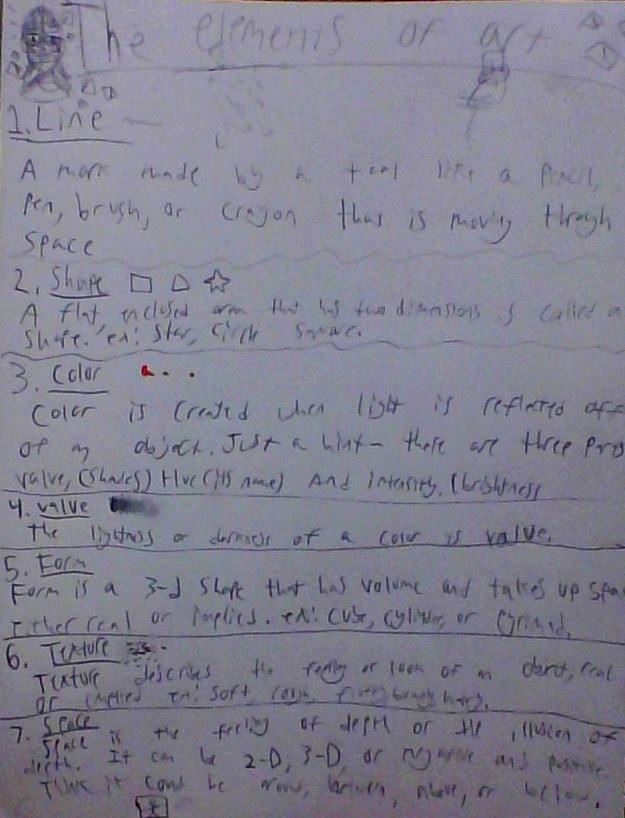 The elements of art
1. Line
A mark made by a tool like a pencil,
Pen, brush, or crayon thas is moving throgh
Space
2. Shape
A flat enclosed area that has two dimensions is called a
Shape. ex: Star, Circle Square.
3. Color
Color is created when light is reflected off
of an object. Just a hint- there are three prop
value, (shades) Hue (its name) And intensity. (brightness
4. Value
The lightness or darkness of a color is value.
5. Form
Form is a 3-d shape that has volume and takes up spa
Either real or implied. ex: Cube, Cylinder, or Pyrimad.
6. Texture
Texture describes the feeling or look of an object, real
or implied ex: soft, rough,
7. Space
Space is the feeling of depth or the illusion of
depth. It can be 2-D, 3-D, or negative and positive.
Think it could be around, between, above, or bellow.